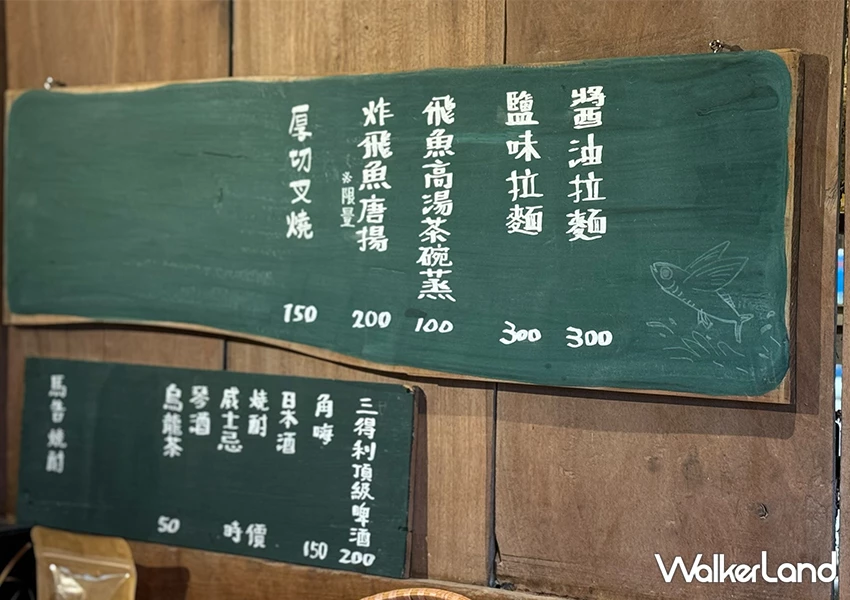 醬油拉麵 300
鹽味拉麵 300
飛魚高湯茶碗蒸 100
炸飛魚唐揚 200
※限量
厚切叉燒 150
三得利頂級啤酒 200
角嗨 150
日本酒
燒酎
威士忌
琴酒
時價
烏龍茶 50
馬告燒酎
WALKERLAND